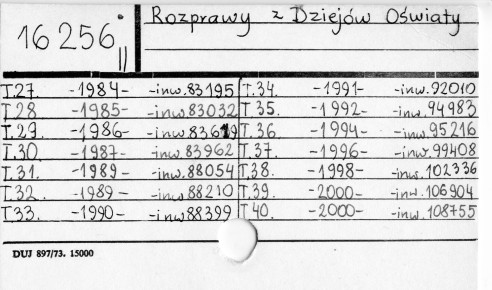 Rozprawy z Dziejów Oświaty
16 256 II
T.27. -1984- -inw.83195 T.34. -1991- -inw.92010
T.28 -1985- -inw.83032 T.35. -1992- -inw.94983
T.29. -1986- -inw.83619 T.36. -1994- -inw.95216
T.30. -1987- -inw.83962 T.37. -1996- -inw.99408
T.31. -1989- -inw.88054 T.38. -1998- -inw.102336
T.32. -1989- -inw.88210 T.39. -2000- -inw.106904
T.33. -1990- -inw.88399 T.40. -2000- -inw.108755
DUJ 897/73. 15000